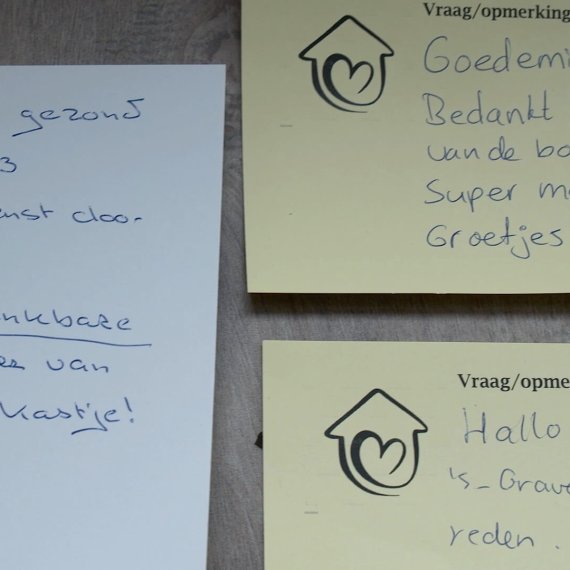 gezond
3
enst doo-
nkbaze
van
Kastje!
Vraag/opmerking
Goedemi
Bedankt
van de bo
Super m
Groetjes
Vraag/opme
Hallo
's-Grave
reden.